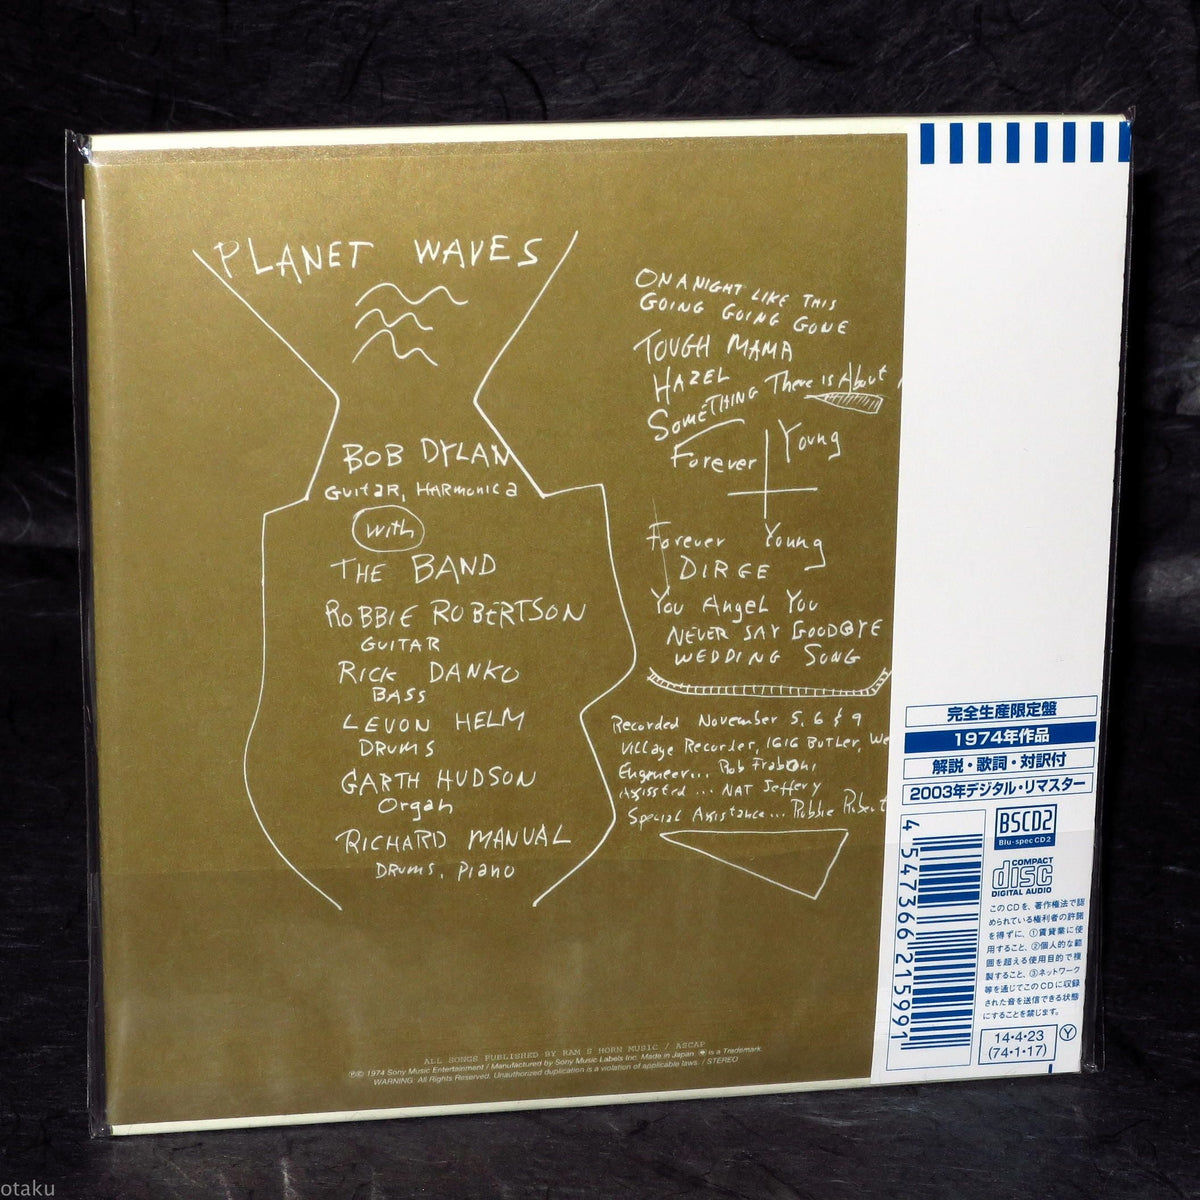 PLANET WAVES
BOB DYLAN
GUITAR, HARMONICA
with
THE BAND
ROBBIE ROBERTSON
GUITAR
RICK DANKO
BASS
LEVON HELM
DRUMS
GARTH HUDSON
Organ
RICHARD MANUAL
DRUMS, PIANO
ON A NIGHT LIKE THIS
GOING GOING GONE
TOUGH MAMA
HAZEL
SOMETHING There is About
Forever Young
Forever Young
DIRGE
You Angel You
NEVER SAY GOODBYE
WEDDING SONG
Recorded November 5, 6 & 9
Village Recorder, 1616 BUTLER, We
Engeneer... Rob Fraboni
Assisted... NAT Jeffery
Special Assistance... Robbie Robert
ALL SONGS PUBLISHED BY RAM'S HORN MUSIC / ASCAP
℗© 1974 Sony Music Entertainment / Manufactured by Sony Music Labels Inc. Made in Japan. is a Trademark.
WARNING: All Rights Reserved. Unauthorized duplication is a violation of applicable laws. / STEREO
完全生産限定盤
1974年作品
解説・歌詞・対訳付
2003年デジタル・リマスター
BSCD2
Blu-spec CD2
COMPACT
disc
DIGITAL AUDIO
4 547366 215991
このCDを、著作権法で認
められている権利者の許諾
を得ずに、①賃貸業に使
用すること、②個人的な範
囲を超える使用目的で複
製すること、③ネットワーク
等を通じてこのCDに収録
された音を送信できる状態
にすることを禁じます。
14・4・23
(74・1・17)
Y
otaku